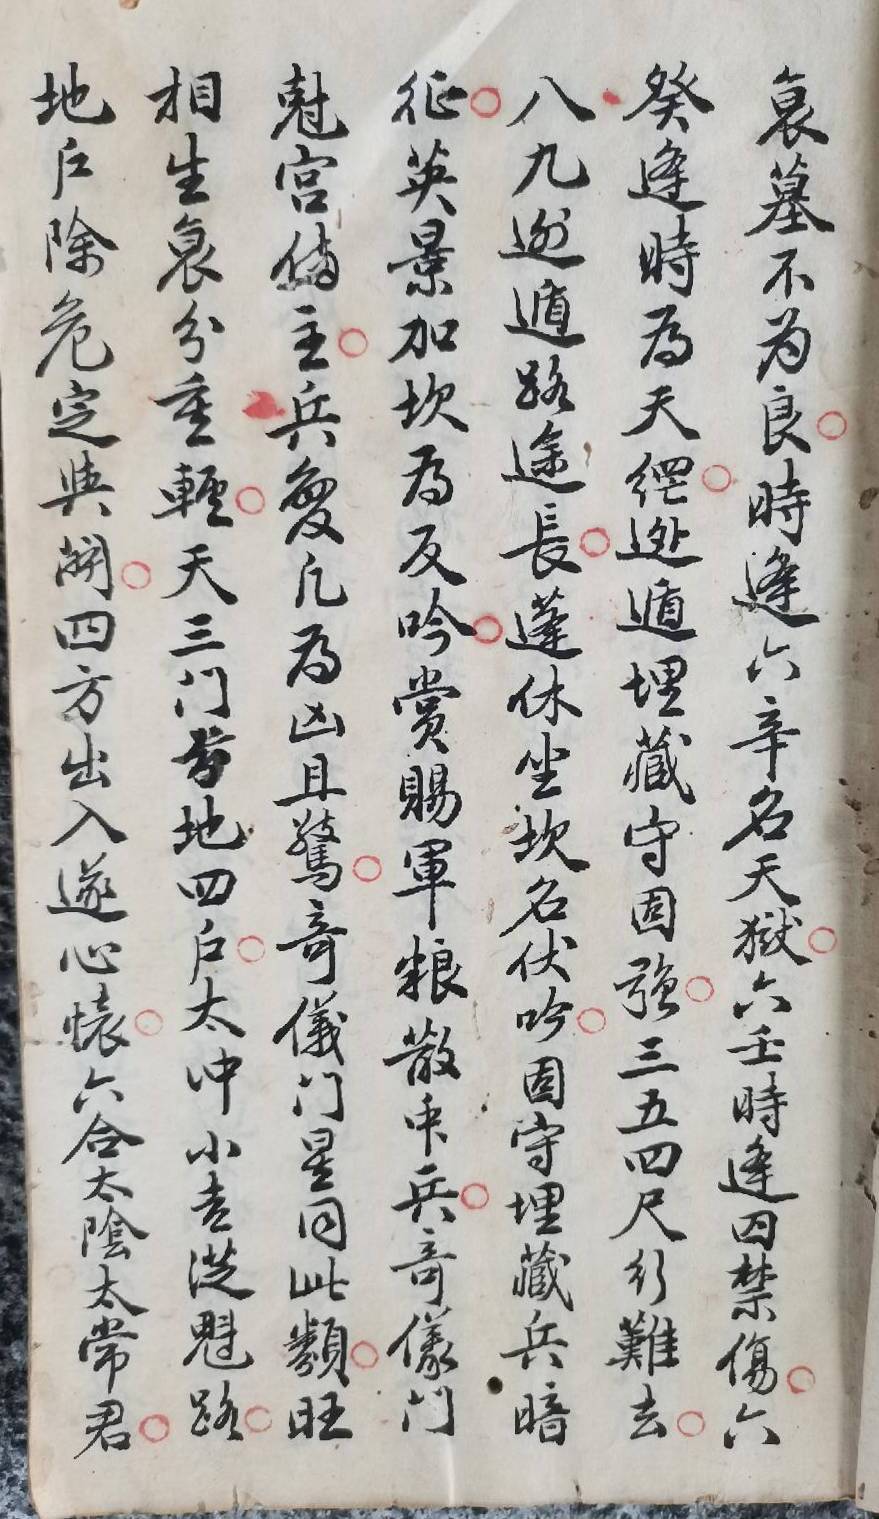 衰墓不为良○時逢六辛名天獄○六壬時逢囚禁傷○六
癸逢時為天網○逃遁埋藏守固強○三五四尺行難去○
八九逃遁路途長○蓬休坐坎名伏吟○固守埋藏兵暗
征○英景加坎為反吟○賞賜軍粮散和兵○奇儀門
尅宮偹主○兵變凡為凶且驚○奇儀门星同此類○旺
相生衰分重輕○天三门芳地四户○太冲小吉從魁路○
地户除危定與開○四方出入遂心懷○六合太陰太常君○